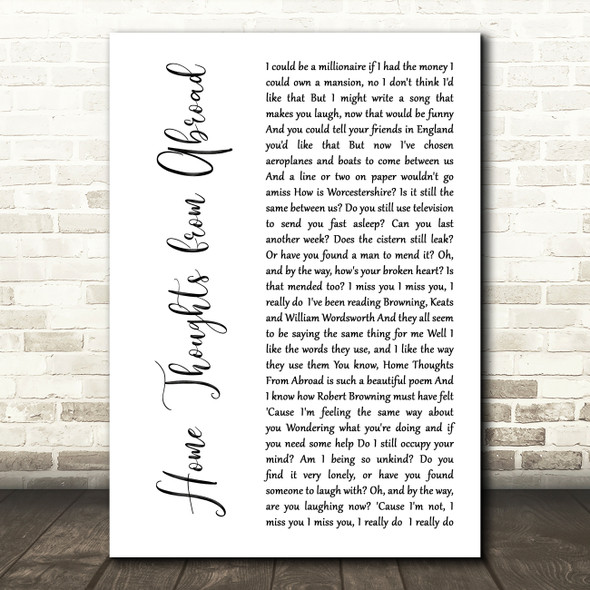 Home Thoughts from Abroad
I could be a millionaire if I had the money I
could own a mansion, no I don't think I'd
like that But I might write a song that
makes you laugh, now that would be funny
And you could tell your friends in England
you'd like that But now I've chosen
aeroplanes and boats to come between us
And a line or two on paper wouldn't go
amiss How is Worcestershire? Is it still the
same between us? Do you still use television
to send you fast asleep? Can you last
another week? Does the cistern still leak?
Or have you found a man to mend it? Oh,
and by the way, how's your broken heart? Is
that mended too? I miss you I miss you, I
really do I've been reading Browning, Keats
and William Wordsworth And they all seem
to be saying the same thing for me Well I
like the words they use, and I like the way
they use them You know, Home Thoughts
From Abroad is such a beautiful poem And
I know how Robert Browning must have felt
'Cause I'm feeling the same way about
you Wondering what you're doing and if
you need some help Do I still occupy your
mind? Am I being so unkind? Do you
find it very lonely, or have you found
someone to laugh with? Oh, and by the way,
are you laughing now? 'Cause I'm not, I
miss you I miss you, I really do I really do